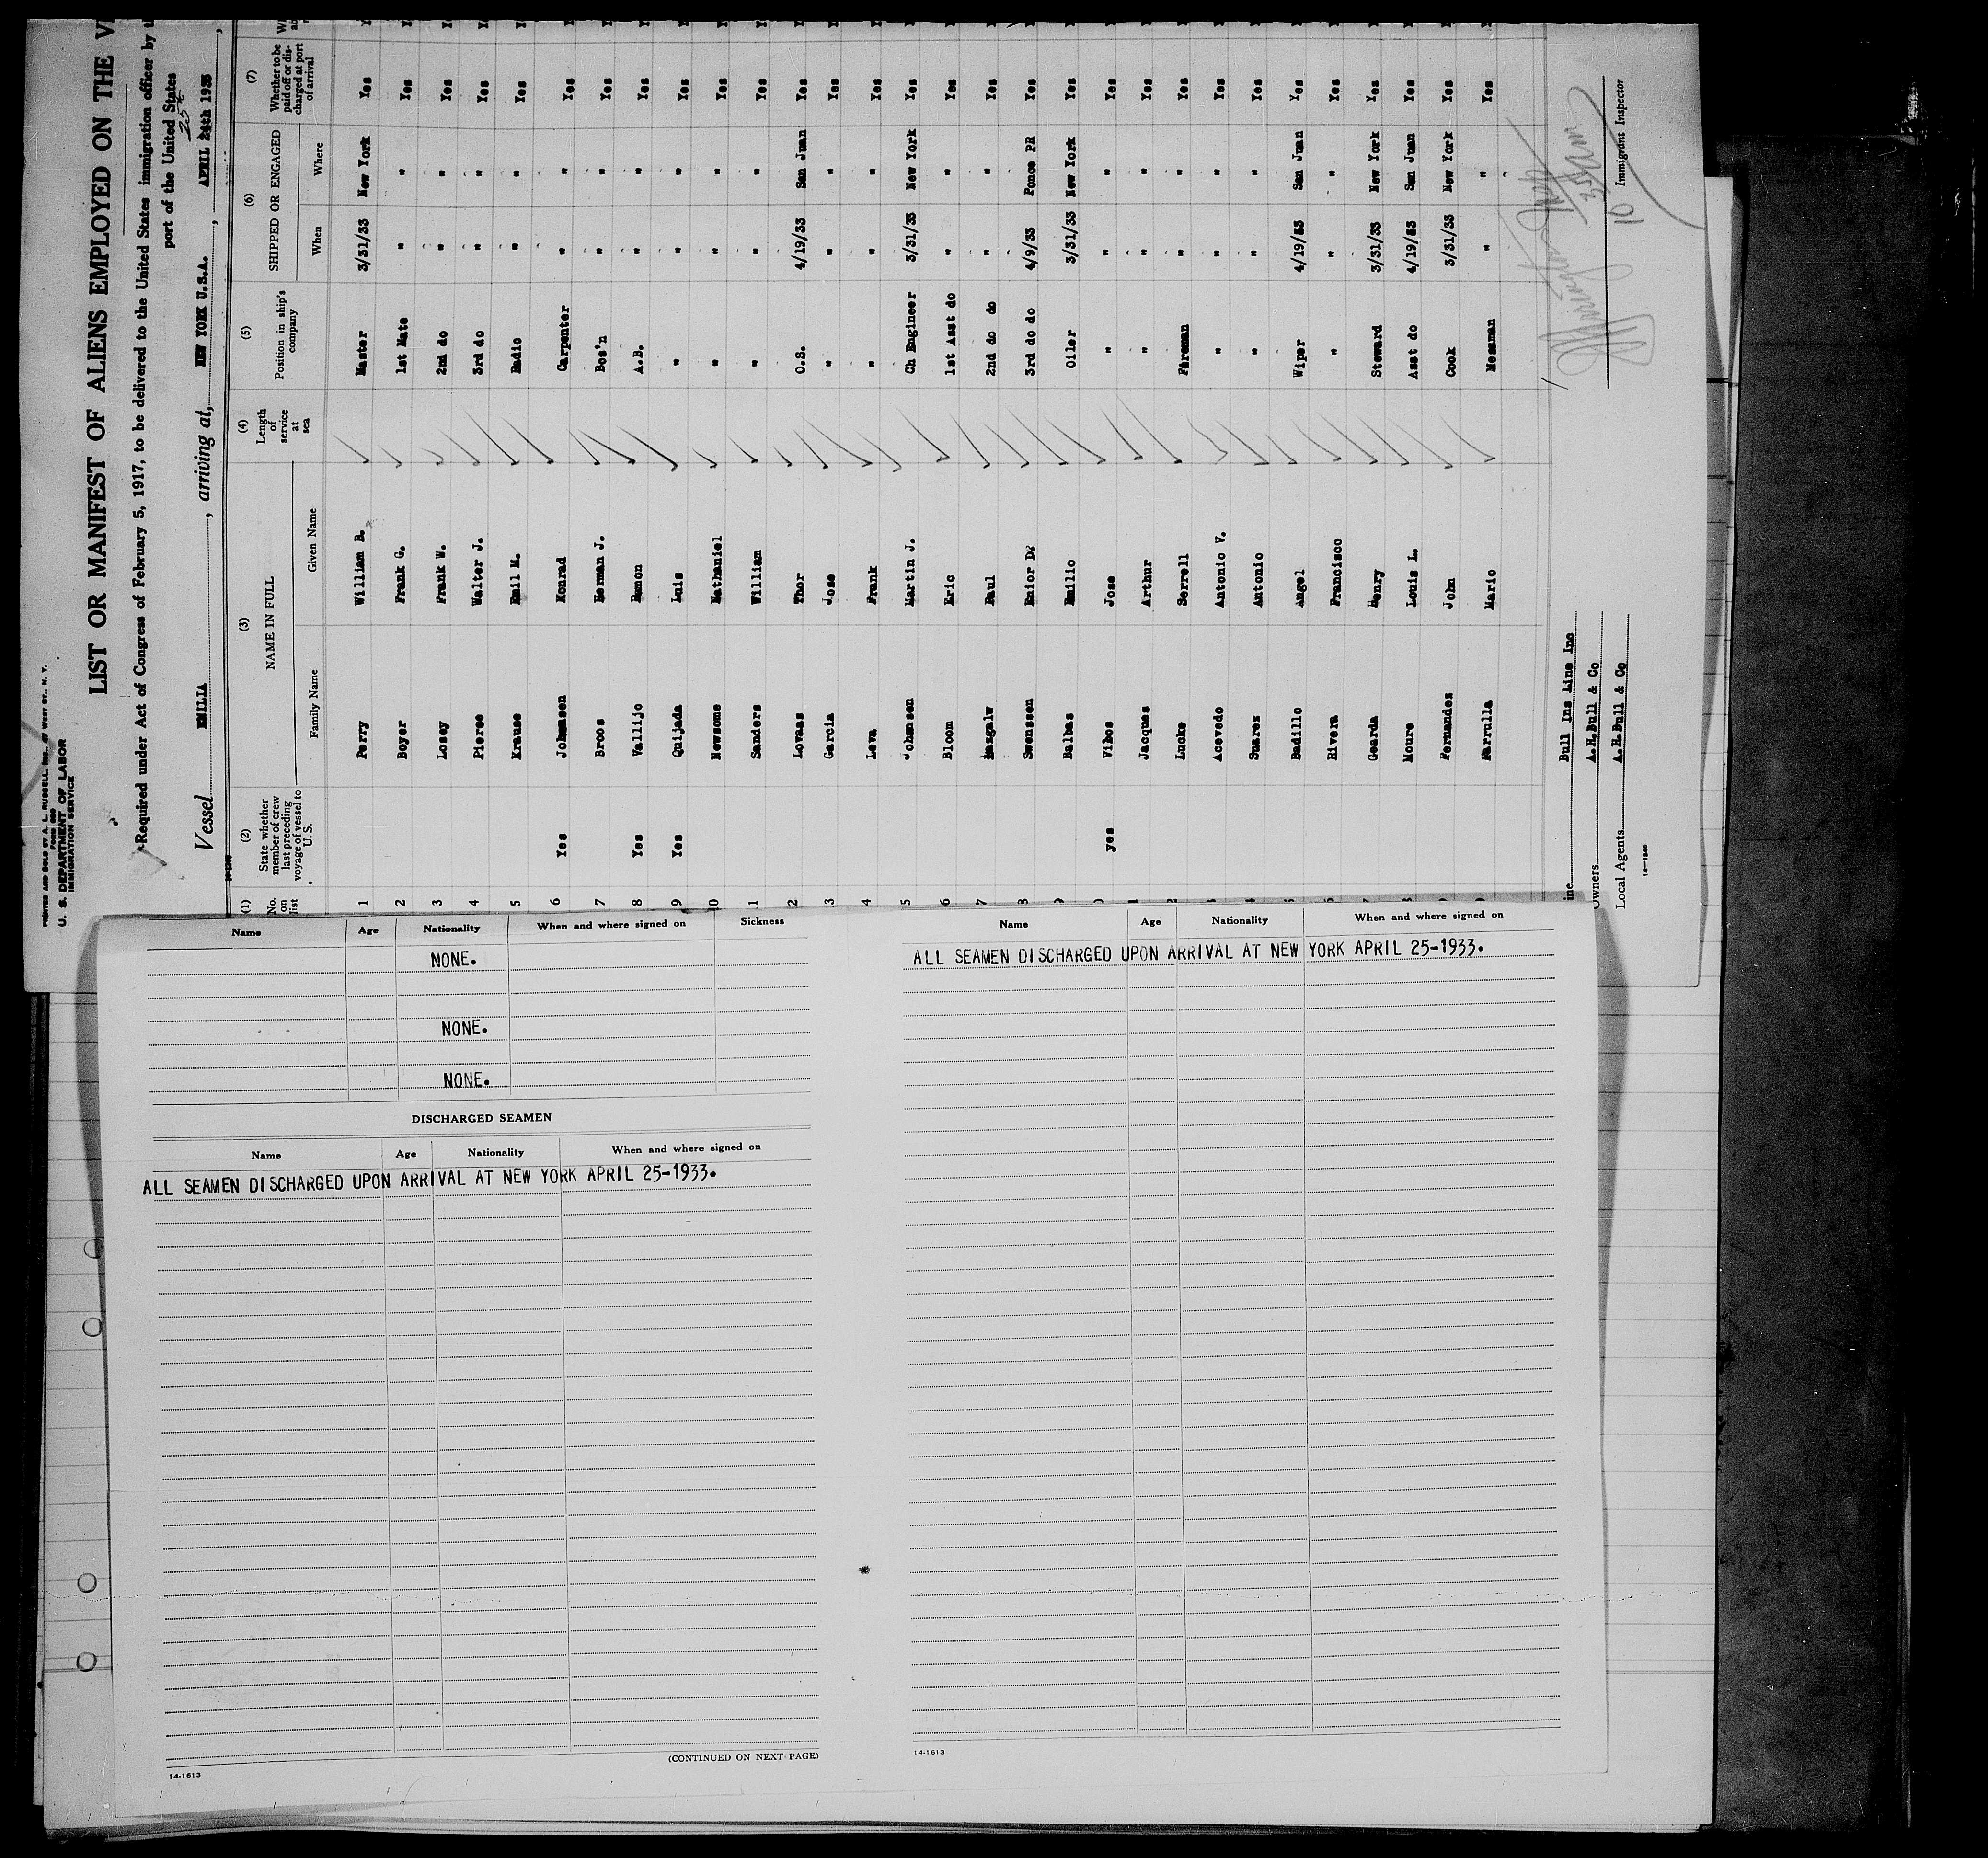 PRINTED AND SOLD BY A. L. RUSSELL, INC., 47 WEST ST., N. Y.
FORM 680
U. S. DEPARTMENT OF LABOR
IMMIGRATION SERVICE
LIST OR MANIFEST OF ALIENS EMPLOYED ON THE
Required under Act of Congress of February 5, 1917, to be delivered to the United States immigration officer by
port of the United States
Vessel EMILIA, arriving at, NEW YORK U.S.A., APRIL 24th 1933,
25
(1) (2) (3) (4) (5) (6) (7)
No. on list State whether member of crew last preceding voyage of vessel to U. S. NAME IN FULL Length of service at sea Position in ship's company SHIPPED OR ENGAGED Whether to be paid off or discharged at port of arrival
Family Name Given Name When Where
1 Perry William B. Master 3/31/33 New York Yes
2 Boyer Frank G. 1st Mate " " Yes
3 Losey Frank W. 2nd do " " Yes
4 Pierce Walter J. 3rd do " " Yes
5 Krause Emil M. Radio " " Yes
6 Yes Johnsen Konrad Carpenter " " Yes
7 Broos Herman J. Bos'n " " Yes
8 Yes Vallijo Ramon A.B. " " Yes
9 Yes Quijada Luis " " " Yes
0 Newsome Nathaniel " " " Yes
1 Sanders William " " " Yes
2 Lovaas Thor O.S. 4/19/33 San Juan Yes
3 Garcia Jose " " " Yes
4 Leva Frank " " " Yes
5 Johansen Martin J. Ch Engineer 3/31/33 New York Yes
6 Bloom Eric 1st Asst do " " Yes
7 Paul 2nd do do " " Yes
8 Swenssen Enior D. 3rd do do 4/9/33 Ponce PR Yes
9 Balbas Emilio Oiler 3/31/33 New York Yes
0 yes Vibos Jose " " " Yes
1 Jacques Arthur " " " Yes
2 Lucke Serrell Fireman " " Yes
3 Acevedo Antonio V. " " " Yes
4 Suarez Antonio " " " Yes
5 Badillo Angel Wiper 4/19/33 San Juan Yes
6 Rivera Francisco " " " Yes
7 Gearda Henry Steward 3/31/33 New York Yes
8 Moure Louis L. Asst do 4/19/33 San Juan Yes
9 Fernandez John Cook 3/31/33 New York Yes
Farrulla Mario Mesman " " Yes
ine Bull Ins Line Inc
Owners A.H.Bull & Co
Local Agents A.H.Bull & Co
Immigrant Inspector
14—1240
Name Age Nationality When and where signed on Sickness
NONE.
NONE.
NONE.
DISCHARGED SEAMEN
Name Age Nationality When and where signed on
ALL SEAMEN DISCHARGED UPON ARRIVAL AT NEW YORK APRIL 25-1933.
(CONTINUED ON NEXT PAGE)
14-1613
Name Age Nationality When and where signed on
ALL SEAMEN DISCHARGED UPON ARRIVAL AT NEW YORK APRIL 25-1933.
14-1613